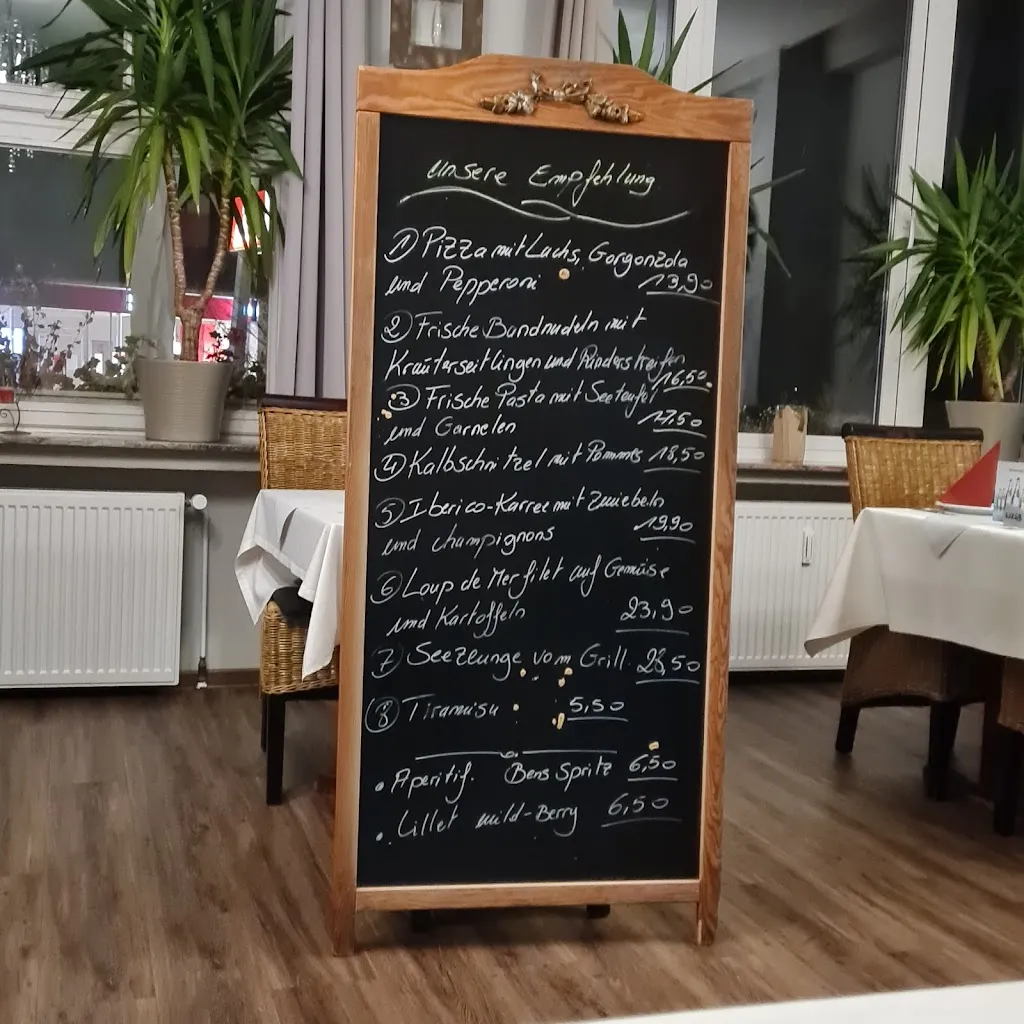 unsere Empfehlung
1) Pizza mit Lachs, Gorgonzola
und Pepperoni 13,90
2 Frische Bandnudeln mit
Kräuterseitlingen und Rinderstreifen
16,50
3 Frische Pasta mit Seeteufel
und Garnelen 17,50
4 Kalbschnitzel mit Pommes 18,50
5 Iberico-Karree mit Zwiebeln
und champignons 19,90
6 Loup de Mer filet auf Gemüse
und Kartoffeln 23,90
7 Seezunge vom Grill 28,50
8 Tiramisu 5,50
• Aperitif. Bens Spritz 6,50
• Lillet wild-Berry 6,50